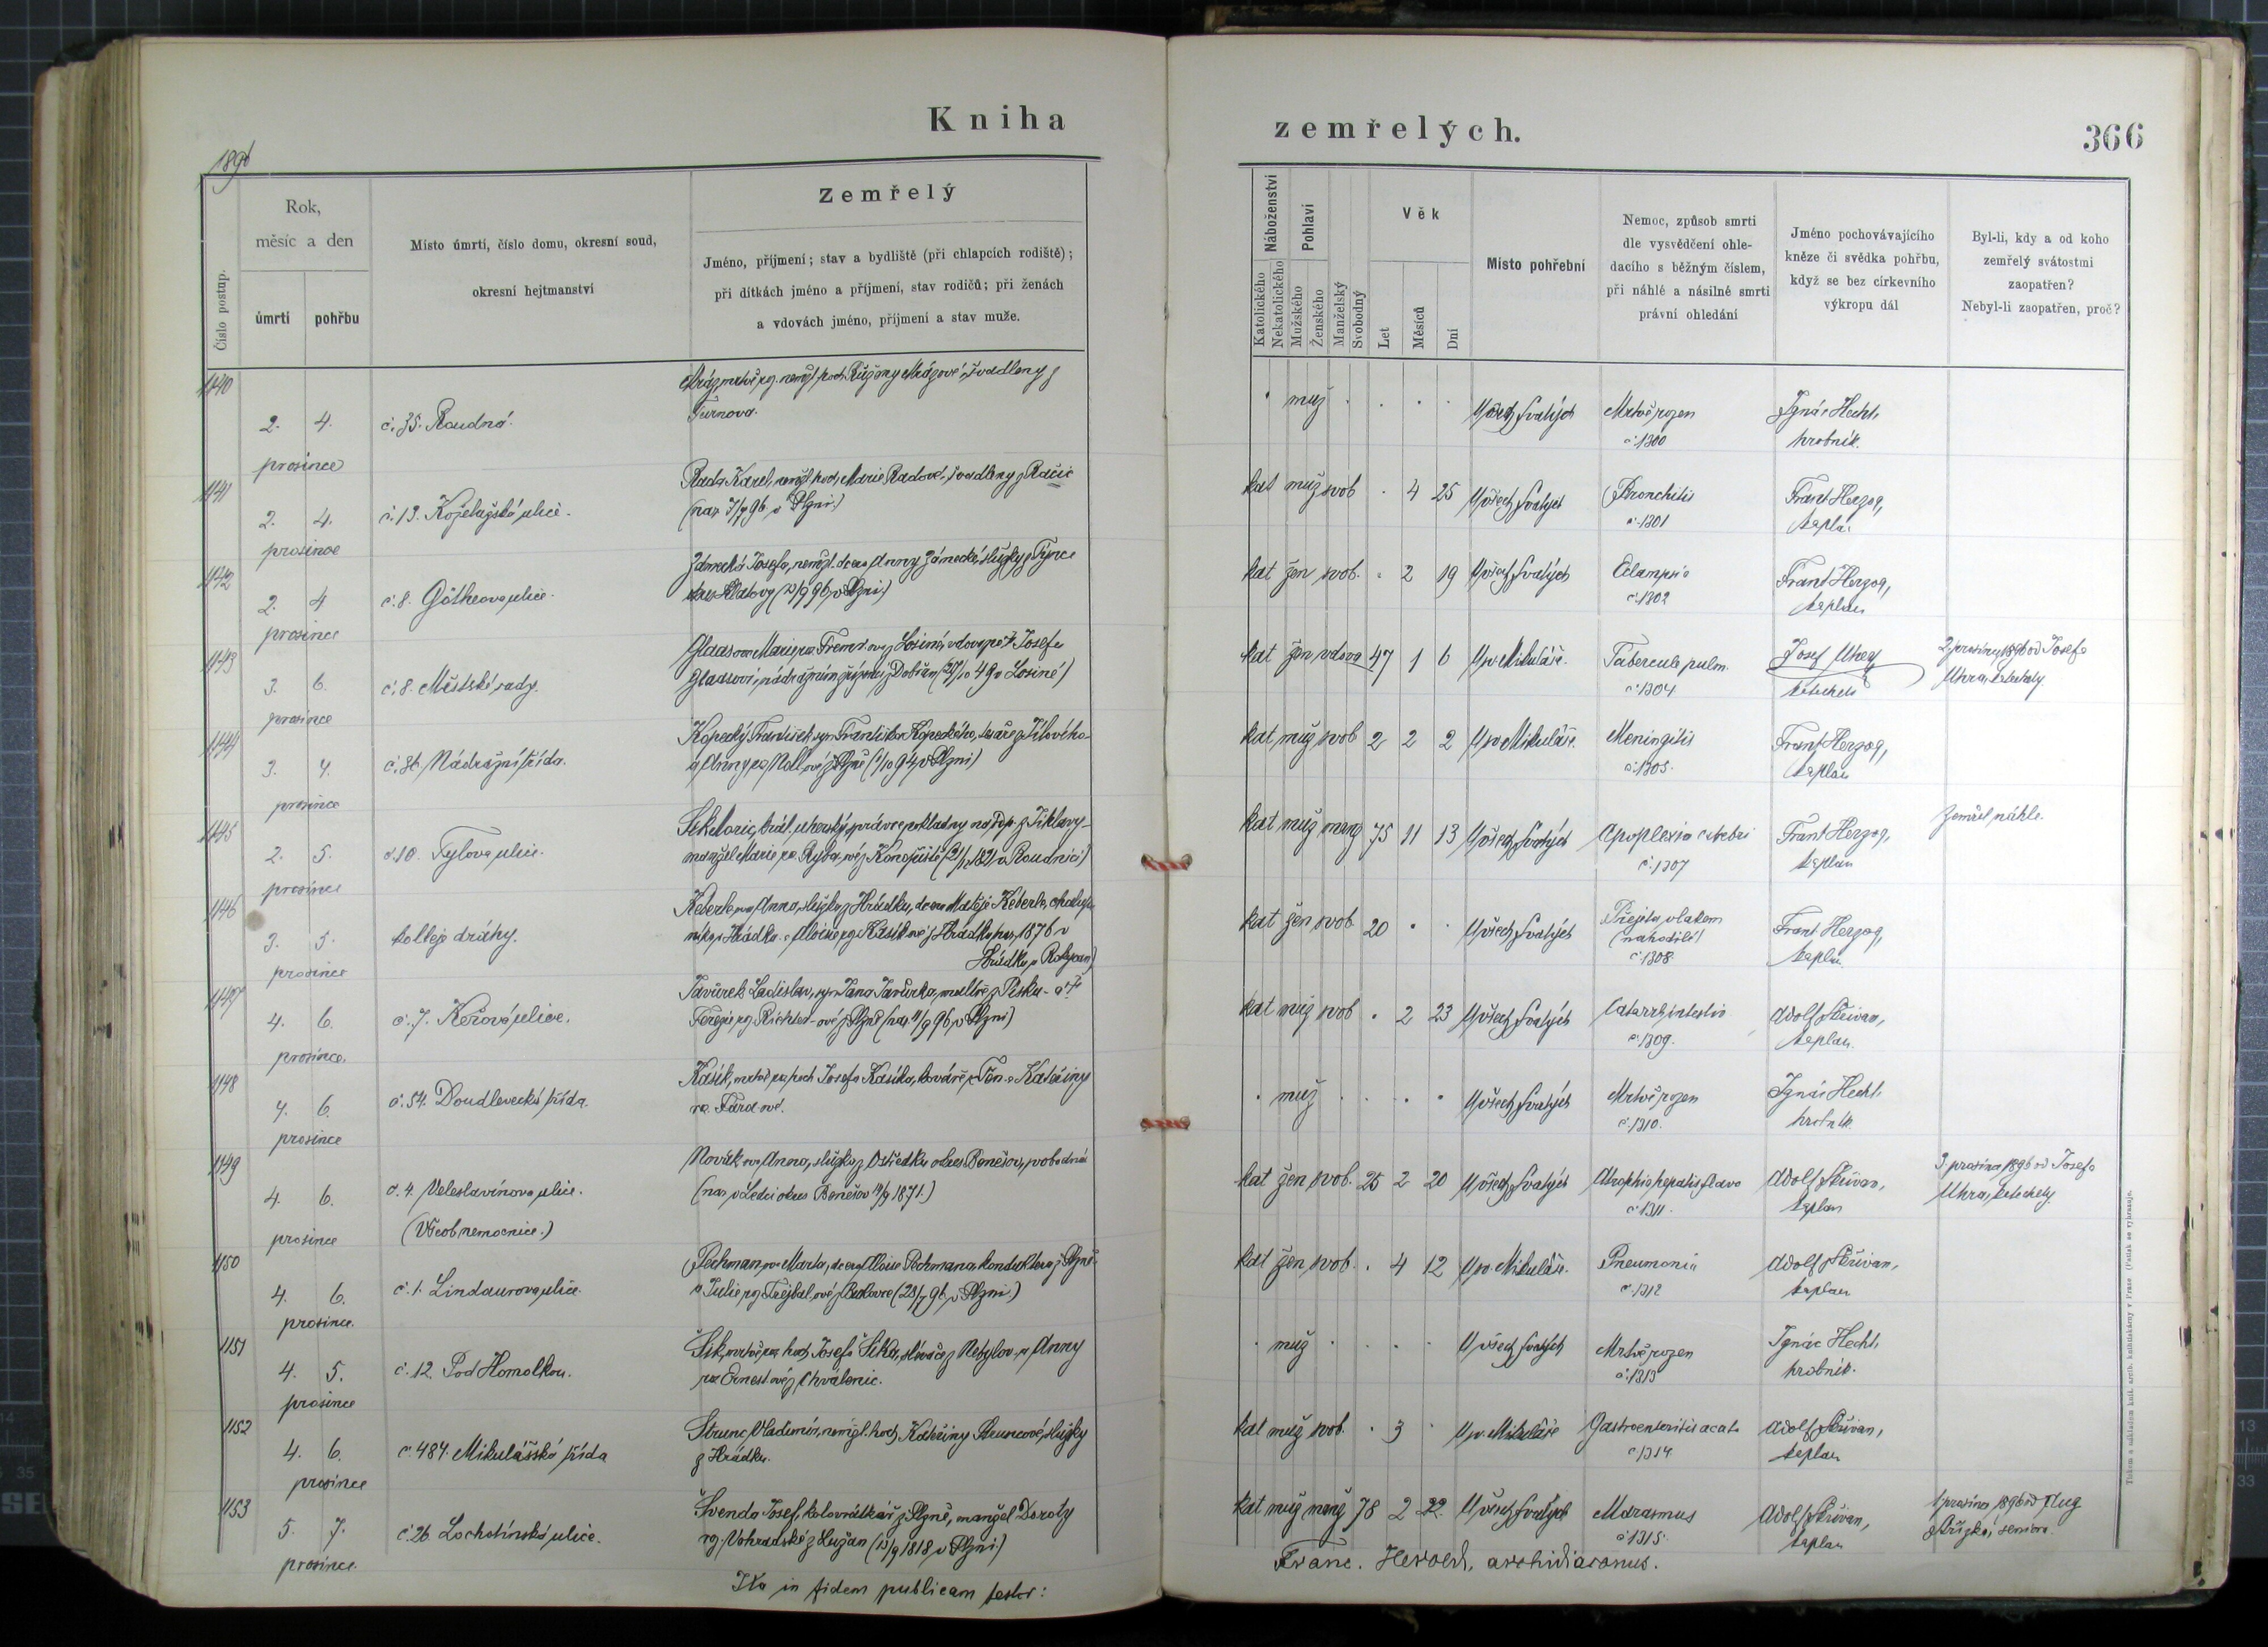 Kniha
zemřelých.
366
1896
Číslo postup.
Rok,
měsíc a den
úmrtí
pohřbu
Místo úmrtí, číslo domu, okresní soud,
okresní hejtmanství
Zemřelý
Jméno, příjmení; stav a bydliště (při chlapcích rodiště);
při dítkách jméno a příjmení, stav rodičů; při ženách
a vdovách jméno, příjmení a stav muže.
Náboženství
Katolického
Nekatolického
Pohlaví
Mužského
Ženského
Manželský
Svobodný
Věk
Let
Měsíců
Dní
Místo pohřební
Nemoc, způsob smrti
dle vysvědčení ohle-
dacího s běžným číslem,
při náhlé a násilné smrti
právní ohledání
Jméno pochovávajícího
kněze či svědka pohřbu,
když se bez církevního
výkropu dál
Byl-li, kdy a od koho
zemřelý svátostmi
zaopatřen?
Nebyl-li zaopatřen, proč?
1140
2. 4.
prosince
č. 35. Roudná.
Mráz, mrtvě roz. nemžl. hoch Růženy Mrázové, švadleny z
Turnova.
muž
U všech Svatých
Mrtvě rozen
č. 1300
Ignác Hecht,
hrobník.
1141
2. 4.
prosince
č. 13. Koželužská ulice.
Rada Karel, nemžl. hoch Marie Radové, švadleny z Račic
(nar. 7/7 96. v Plzni.)
kat muž svob . 4 25
U všech Svatých
Bronchitis
č. 1301
Frant Herzog,
kaplan
1142
2. 4
prosince
č. 8. Götheova ulice.
Zámecká Josefa, nemžl. dcera Anny Zámecké, služky z Týnce
okres Klatovy (13/9 96, v Plzni)
kat žen svob. . 2 19
U všech Svatých
Eclampsie
č. 1302
Frant Herzog,
kaplan
1143
3. 6.
prosince
č. 8. Městské sady.
Glaasova Marie, roz. ova z Losiné, vdova po † Josefu
Glaasovi, nádražním z Dobřan (10 49 v Losiné)
kat žen vdova 47 1 6
U sv. Mikuláše.
Tubercule pulm.
č. 1304
Josef Uher
katecheta
2. prosince 1896 od Josefa
Uhra, katechety
1144
3. 4.
prosince
č. 36, Nádražní třída.
Kopecký František, syn Františka Kopeckého, z Jílového
a Anny roz. ové z Plzně (1/10 94, v Plzni)
kat muž svob 2 2 2
U sv. Mikuláše.
Meningitis
č. 1305.
Frant Herzog,
kaplan
1145
2. 5.
prosince
č. 10. Tylova ulice.
král. uherský správce pokladny na odp. z Jihlavy
manžel Marie roz. Ryba, ové z Konopiště (1821 v Roudnici)
kat muž manž 75 11 13
U všech Svatých
Apoplexia cerebri
č. 1307
Frant Herzog,
kaplan
Zemřel náhle.
1146
3. 5.
prosince
kolleje dráhy.
Keberle, ova Anna, služka z Hrádku, dcera Matěje Keberle,
z Hrádku a Aloisie roz. Kasík ové z Hrádku, nar. 1876 v
Hrádku, u Rokycan)
kat žen svob 20
U všech Svatých
Přejeta vlakem
(nahodile)
č. 1308
Frant Herzog,
kaplan
1147
4. 6.
prosince.
č. 7. Keřová ulice.
Javůrek Ladislav, syn Jana Javůrka, z Písku - a †
Terezie roz. Richter-ové z Plzně (nar. 11/9 96, v Plzni)
kat muž svob . 2 23
U všech Svatých
Catarrh intestin
č. 1309.
Adolf Skřivan,
kaplan.
1148
4. 6.
prosince
č. 54. Doudlevecká třída.
Kasík, mrtvě roz. hoch Josefa Kasíka, kováře, a Kateřiny
roz. ové.
muž
U všech Svatých
Mrtvě rozen
č. 1310.
Ignác Hecht,
hrobník.
1149
4. 6.
prosince
č. 4. Veleslavínova ulice.
(Všeob. nemocnice.)
Novák ova Anna, služka z Ostředku okres Benešov, svobodná
(nar. v Ledci okres Benešov 14/9 1871.)
kat žen svob. 25 2 20
U všech Svatých
Atrophia hepatis flava
č. 1311.
Adolf Skřivan,
kaplan
3. prosince 1896 od Josefa
Uhra, katechety.
1150
4. 6.
prosince.
č. 1. Lindaurova ulice.
Pechman, ova Marta, dcera Aloise Pechmana, konduktera z Plzně
a Julie roz. Trejbal, ové z Bukovce (23/7 96, v Plzni.)
kat žen svob. . 4 12
U sv. Mikuláše.
Pneumonia
č. 1312
Adolf Skřivan,
kaplan
1151
4. 5.
prosince
č. 12. Pod Homolkou.
Šik, mrtvě roz. hoch Josefa Šika, slévače z Netylov, a Anny
roz. Ernest ové z Chválenic.
muž
U všech Svatých
Mrtvě rozen
č. 1313
Ignác Hecht,
hrobník.
1152
4. 6.
prosince
č. 484 Mikulášská třída
Strunc, Vladimír, nemžl. hoch Kateřiny Struncové, služky
z Hrádku.
kat muž svob. . 3 .
U sv. Mikuláše
Gastroenteritis acuta
č. 1314
Adolf Skřivan,
kaplan
1153
5. 7.
prosince.
č. 26. Lochotínská ulice.
Švenda Josef, kolovrátkář z Plzně, manžel Doroty
roz. Vohradské z Lužan (13/9 1818 v Plzni)
kat muž manž 78 2 22.
U všech Svatých
Marasmus
č. 1315.
Adolf Skřivan,
kaplan
1. prosince 1896 od Aug
seniora.
Ita in fidem publicam testor:
Franc. Herold, archidiaconus.